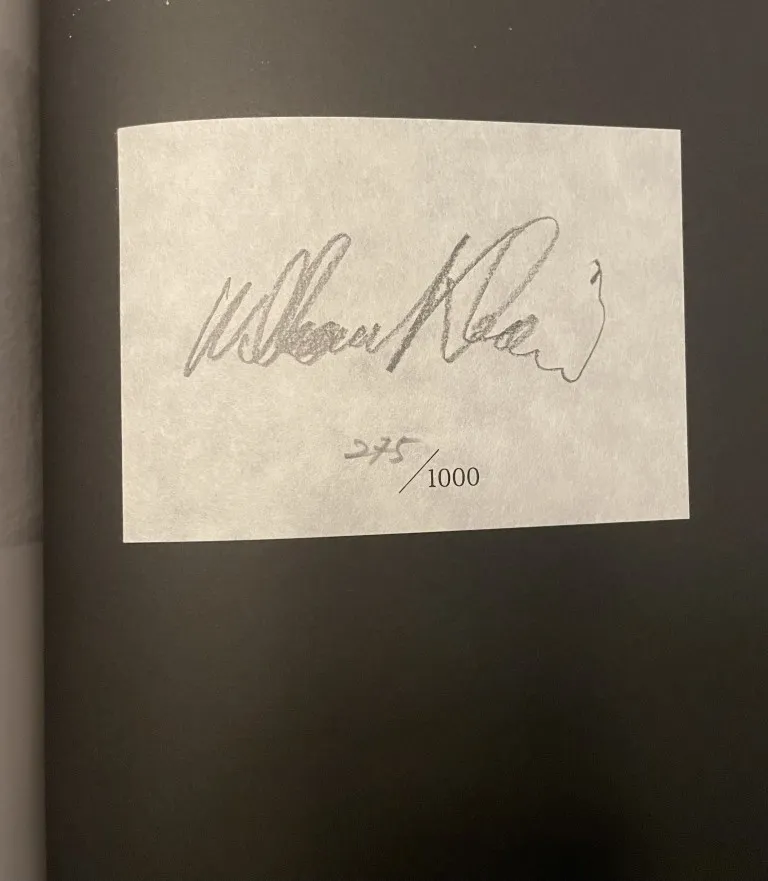 William Klein
275/1000